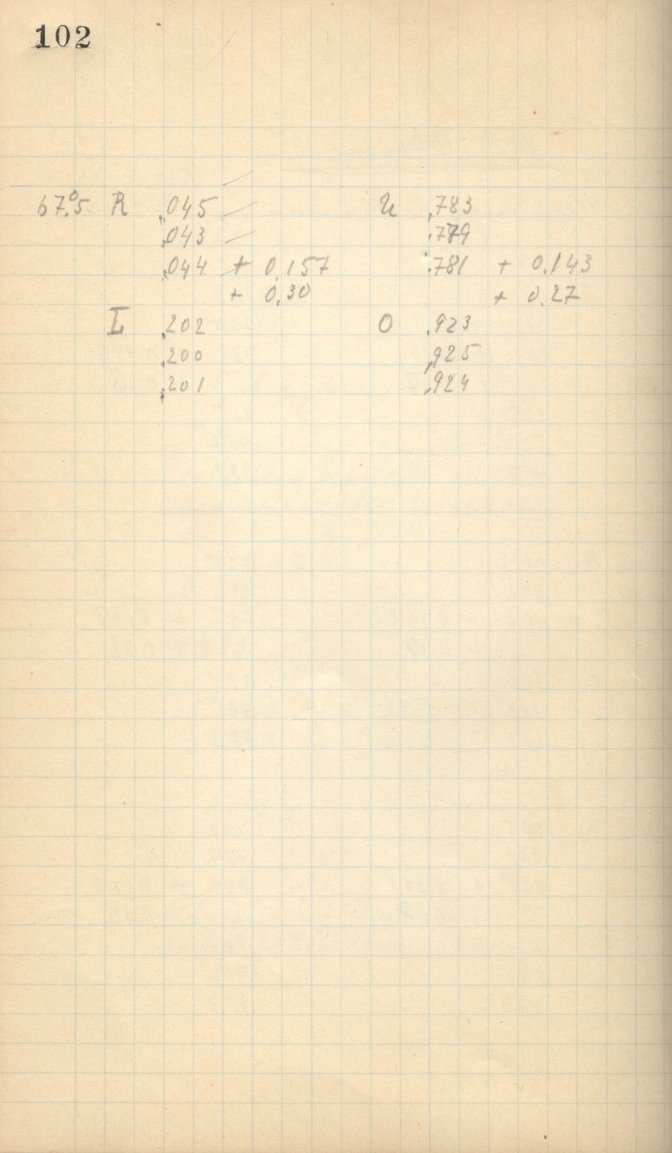 102
67°.5 R ,045 U ,783
,043 ,779
,044 + 0,157 ,781 + 0,143
+ 0,30 + 0,27
L ,202 O ,923
,200 ,925
,201 ,924